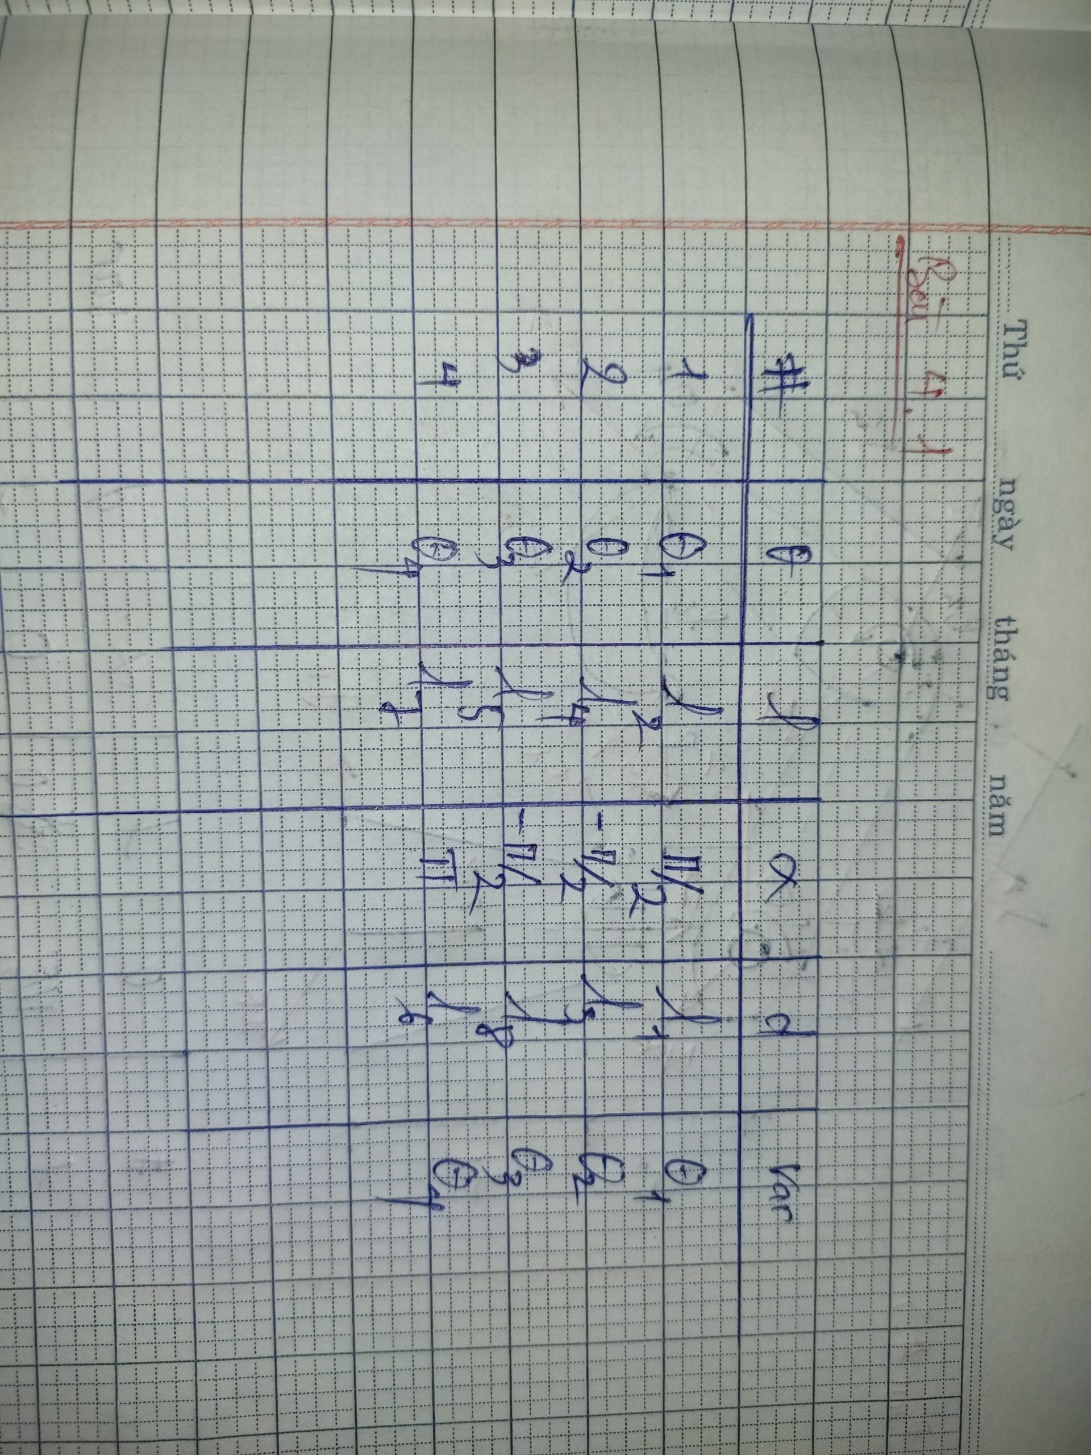 Thứ ngày tháng năm
Bài 4.1
# θ l α d Var
1 θ1 l2 π/2 l1 θ1
2 θ2 l4 -π/2 l3 θ2
3 θ3 l5 -π/2 l8 θ3
4 θ4 l7 π l6 θ4